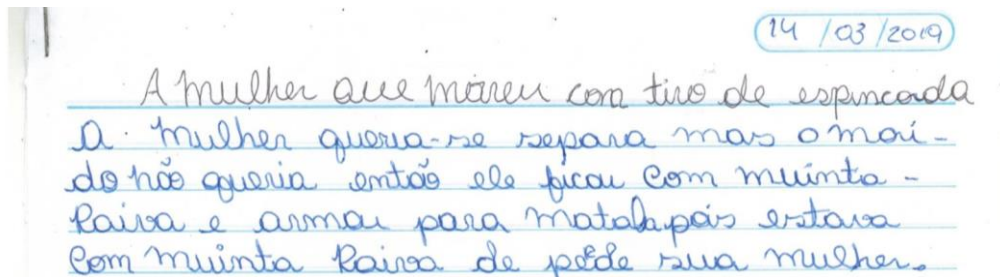 14 / 03 / 2019
A mulher que moreu com tiro de espincarda
A. mulher queria-se separa mas o mai-
do não queria então ele ficou com muinta -
Raiva e armou para matala pois estava
com muinta Raiva de pede sua mulher.